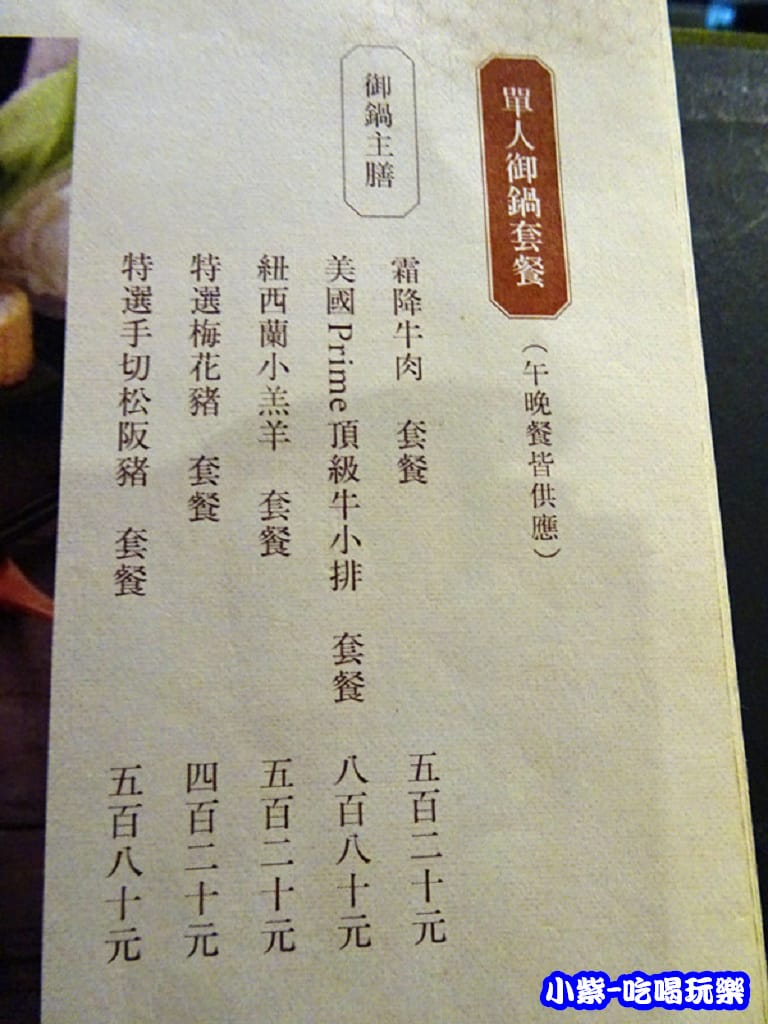 單人御鍋套餐
（午晚餐皆供應）
御鍋主膳
霜降牛肉 套餐 五百二十元
美國Prime頂級牛小排 套餐 八百八十元
紐西蘭小羔羊 套餐 五百二十元
特選梅花豬 套餐 四百二十元
特選手切松阪豬 套餐 五百八十元
小紫-吃喝玩樂